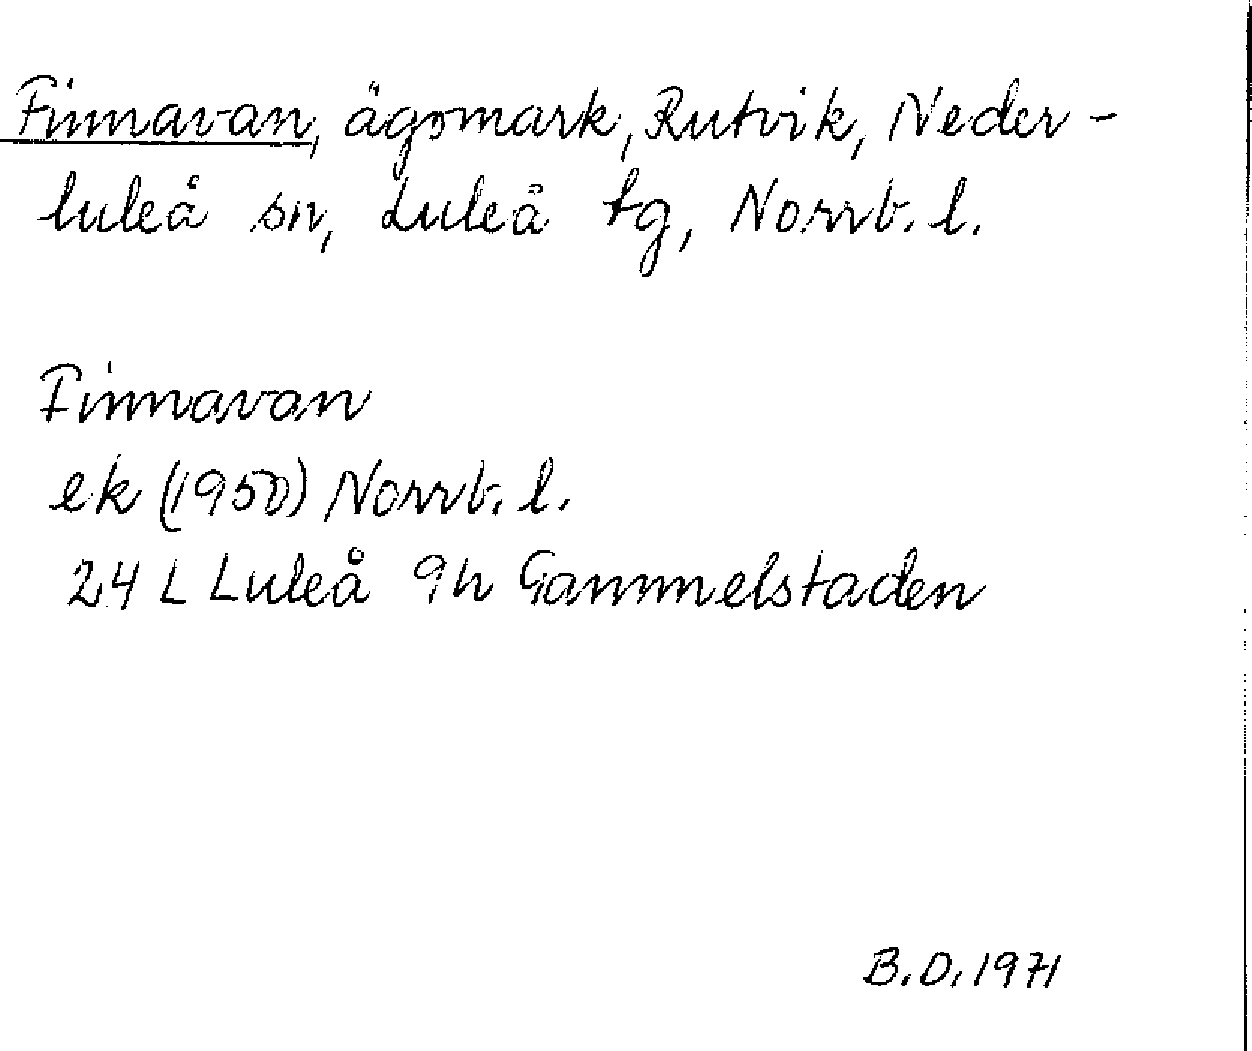 Finnavan, ägomark, Rutvik, Neder-
luleå sn, Luleå tg, Norrb. l.
Finnavan
ek (1950) Norrb. l.
24 L Luleå 9h Gammelstaden
B.D. 1971